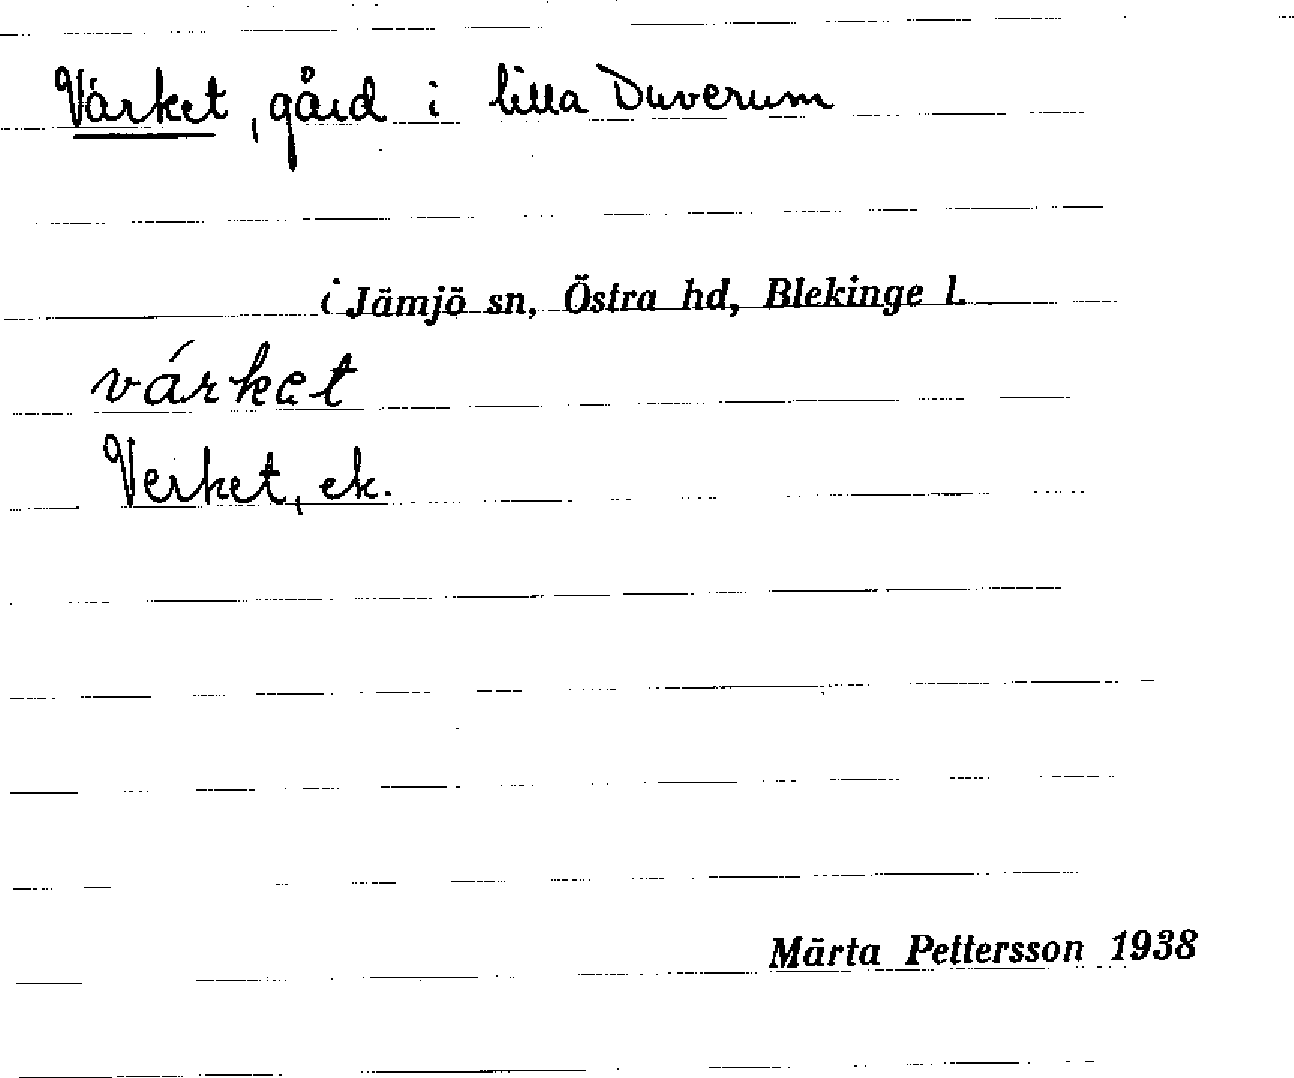 Värket, gård i lilla Duverum
i Jämjö sn, Östra hd, Blekinge l.
várket
Verket, ek.
Märta Pettersson 1938